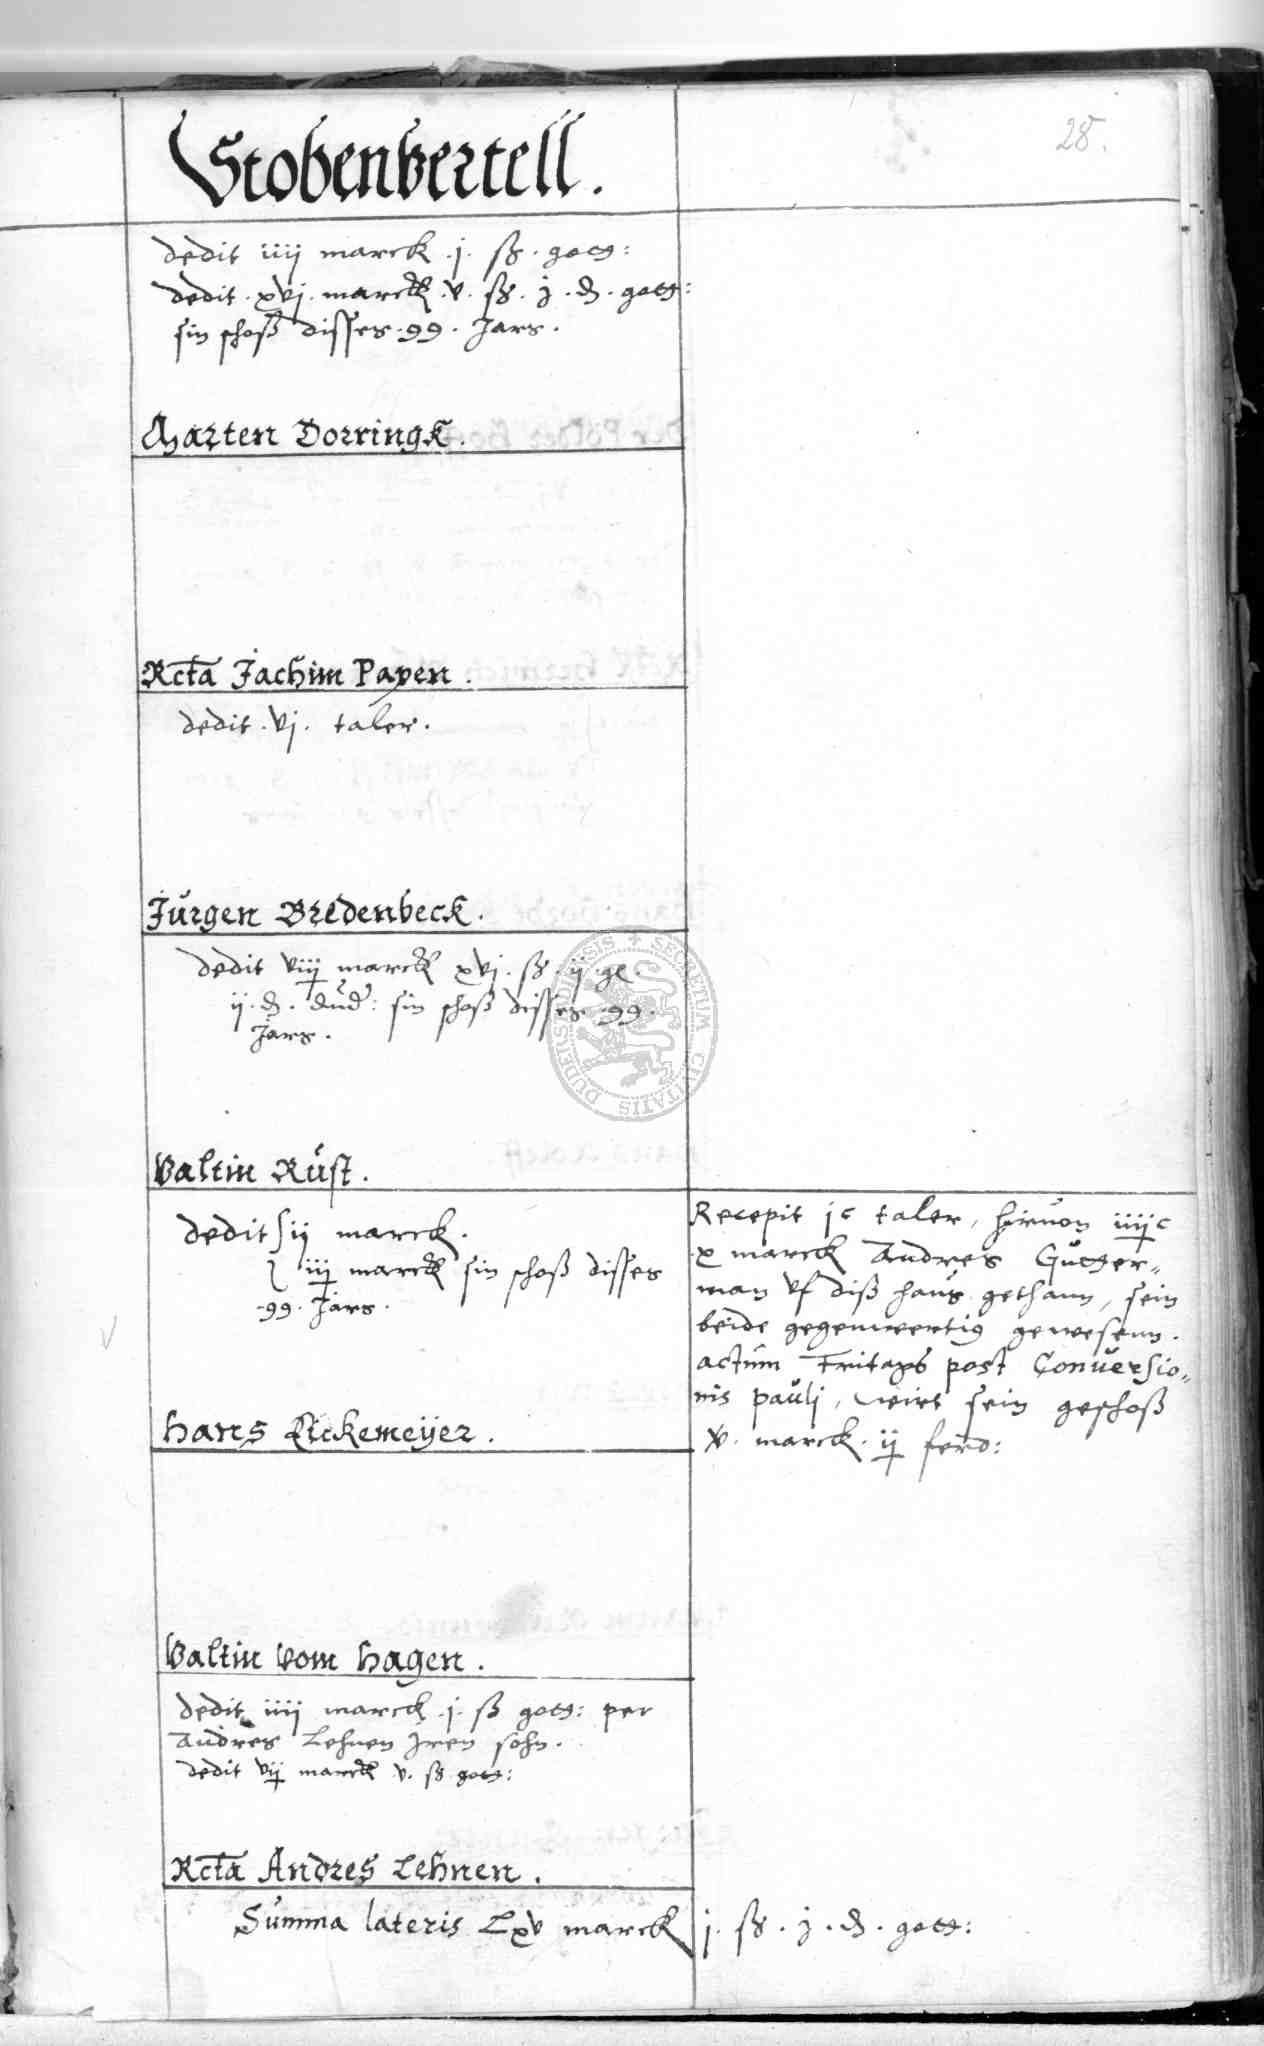 28.
Stobenvertell.
dedit iiij marck .j. ß. gotg:
dedit . xvj. marck .v. ß. j . ₰ . gotg:
sin schoß disses .99. Jars.
Marten Dorringk.
Rcta Jachim Papen.
dedit .vj. taler.
Jürgen Bredenbeck.
dedit viij marck xvj. ß. ij .ge.
ij. ₰. dud: sin schoß disses .99.
Jars.
Valtin Rüst.
dedit ij marck.
iij marck sin schoß disses
.99. Jars.
Hans Rickemeÿer.
Recepit jc taler, hiruon iiijc
x marck Andres Gutger-
man vf diß haus gethann, sein
beide gegenwertig gewesenn.
actum Fritags post Conuersio-
nis paulj, wirt sein geschoß
xv. marck. ij ferd:
Valtin vom Hagen.
dedit iiij marck .j. ß gotg: per
Andres Lehnen Jren sohn.
dedit vij marck v. ß gotg:
Rcta Andres Lehnen.
Summa lateris Lxv marck j. ß. j. ₰. gotg:
SECRETUM CIVITATIS DUDERSTADIENSIS